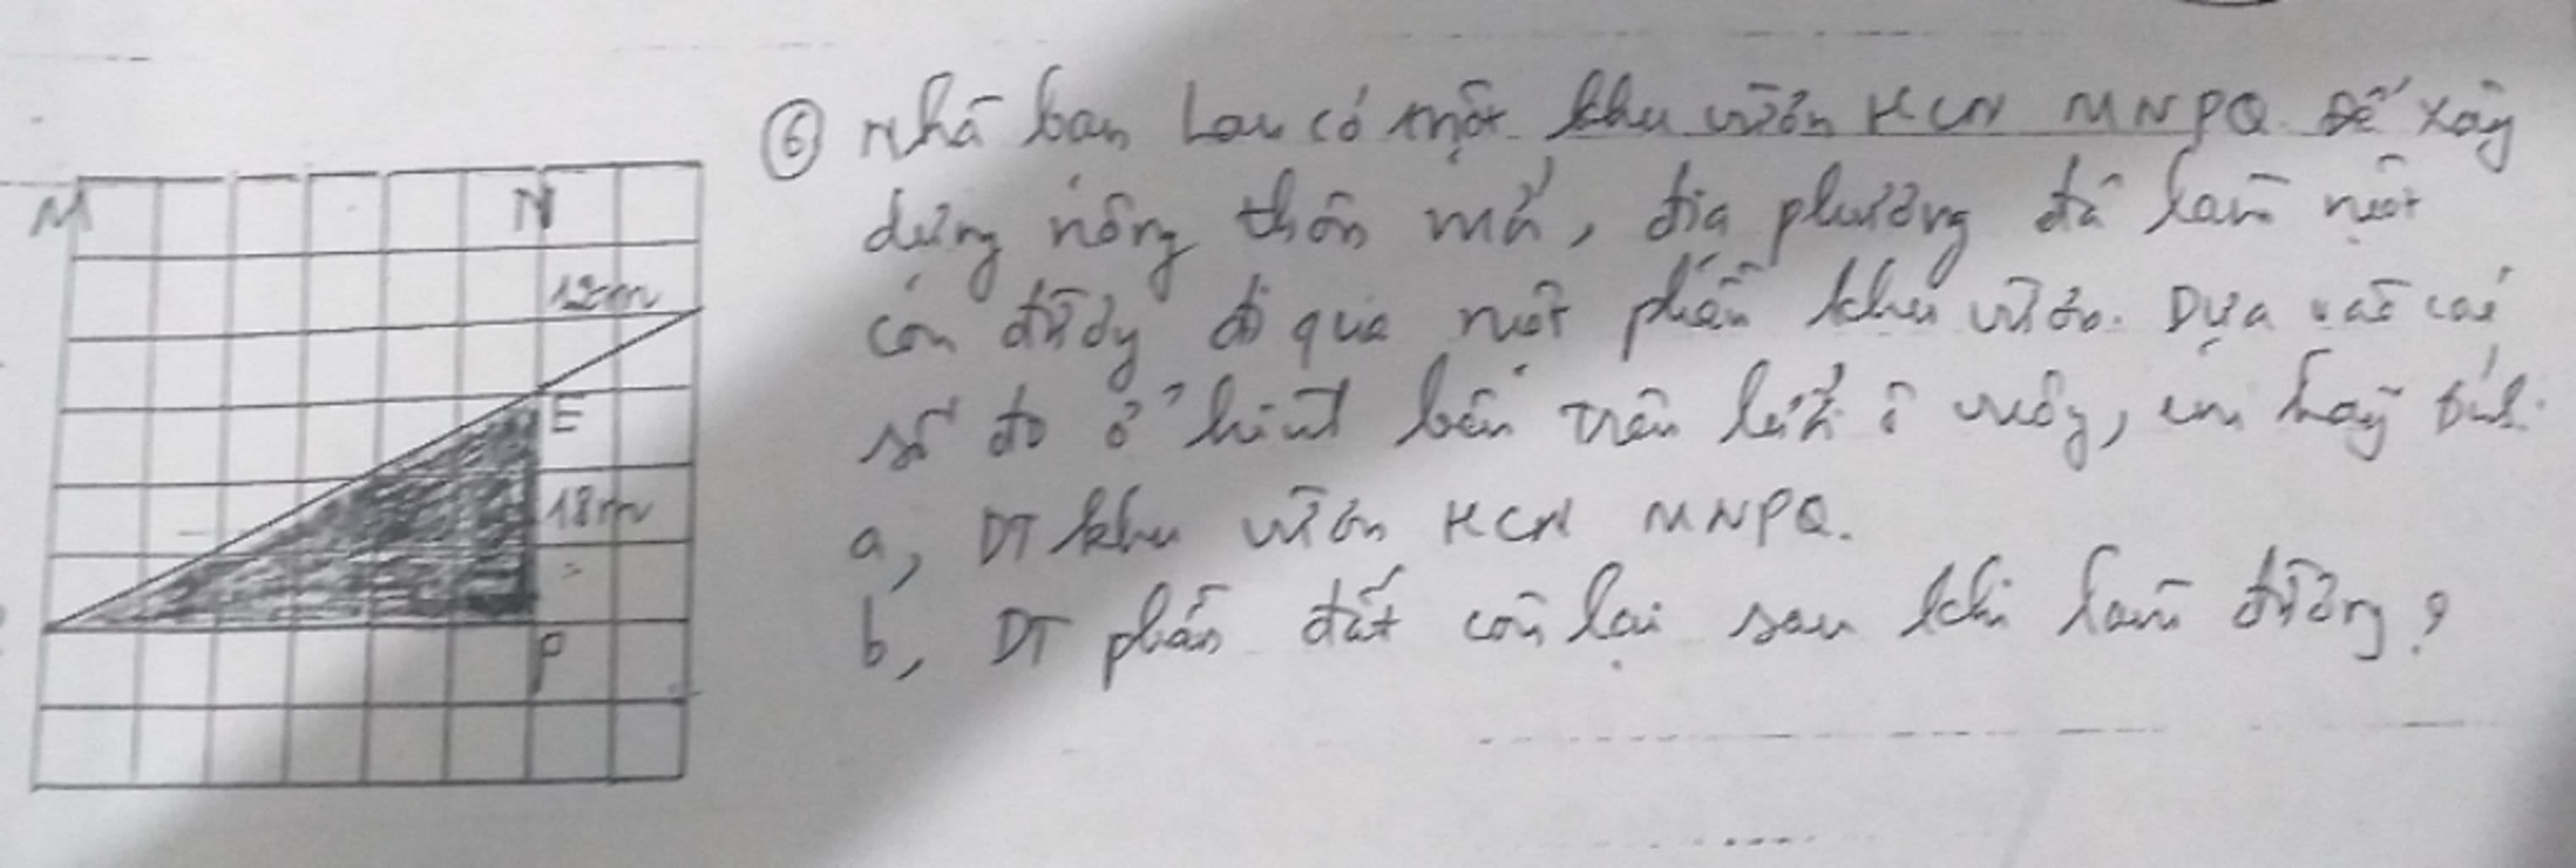 M
N
12m
E
18m
P
⑥ Nhà bạn Lan có một khu vườn HCN MNPQ. Để xây
dựng nông thôn mới, địa phương đã làm một
con đường đi qua một phần khu vườn. Dựa vào các
số đo ở hình bên trên lưới ô vuông, em hãy tính:
a, DT khu vườn HCN MNPQ.
b, DT phần đất còn lại sau khi làm đường?